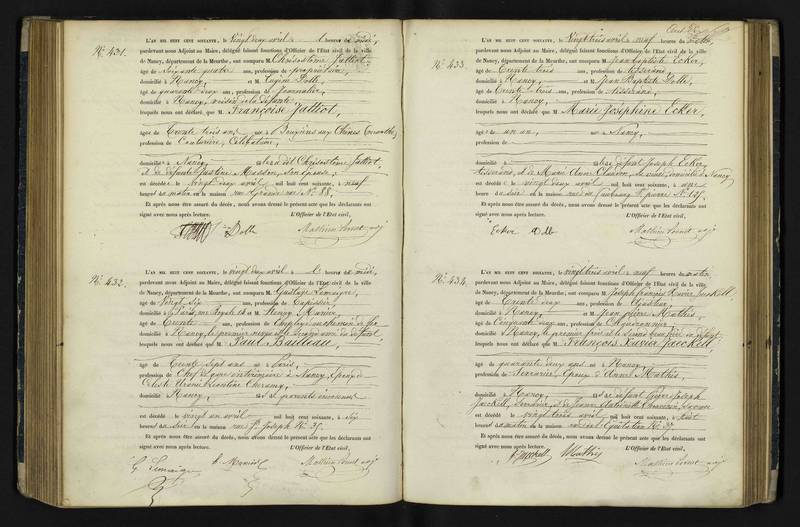 N° 431.
L'AN MIL HUIT CENT SOIXANTE, le vingt deux avril à heures
pardevant nous Adjoint au Maire, délégué faisant fonctions d'Officier de l'Etat civil de la ville
de Nancy, département de la Meurthe, ont comparu M. Chrisostôme Jattiot,
âgé de Soixante quatre ans, profession de propriétaire,
domicilié à Nancy, et M. Eugène Dolle,
âgé de quarante deux ans, profession de Journalier
domicilié à Nancy, voisin de la défunte
lesquels nous ont déclaré que M. Françoise Jattiot,
âgée de Trente trois ans née à Bruyères aux Chênes
profession de Couturière, Célibataire,
domicilié à Nancy fille du dit Chrisostôme Jattiot,
et de défunte Masson, son épouse
est décédé le vingt deux avril mil huit cent soixante, à neuf
heures du matin en la maison Grande rue N° 88.
Et après nous être assuré du décès, nous avons dressé le présent acte que les déclarants ont
signé avec nous après lecture. L'Officier de l'Etat civil,
Dolle
N° 432.
L'AN MIL HUIT CENT SOIXANTE, le vingt deux avril à heures du midi,
pardevant nous Adjoint au Maire, délégué faisant fonctions d'Officier de l'Etat civil de la ville
de Nancy, département de la Meurthe, ont comparu M. Gustave Lemaigre,
âgé de Vingt six ans, profession de Tapissier,
domicilié à Paris, rue et M. Henry Munier
âgé de Trente ans, profession de Employé au chemin de fer
domicilié à Nancy, le premier
lesquels nous ont déclaré que M. Paul Bailleau,
âgé de Trente sept ans né à Paris,
profession de Chef de gare à Nancy, époux de
Céleste
domicilié à Nancy, parents inconnus
est décédé le vingt un avril mil huit cent soixante, à six
heures du soir en la maison rue St Joseph N° 35.
Et après nous être assuré du décès, nous avons dressé le présent acte que les déclarants ont
signé avec nous après lecture. L'Officier de l'Etat civil,
G. Lemaigre H. Munier
N° 433.
L'AN MIL HUIT CENT SOIXANTE, le Vingt trois avril à neuf heures du matin,
pardevant nous Adjoint au Maire, délégué faisant fonctions d'Officier de l'Etat civil de la ville
de Nancy, département de la Meurthe, ont comparu M. Jean Baptiste Ecker,
âgé de Trente trois ans, profession de tisserand,
domicilié à Nancy, et M. Jean Baptiste Dolle,
âgé de Trente trois ans, profession de tisserand,
domicilié à Nancy,
lesquels nous ont déclaré que M. Marie Joséphine Ecker,
âgé de un an, née à Nancy,
profession de
domicilié à fille de défunt Joseph Ecker,
tisserand, et de Marie Anne Claudon, sa veuve, domiciliée à Nancy
est décédé le vingt deux avril mil huit cent soixante, à une
heure du soir en la maison rue du faubourg St pierre N° 127.
Et après nous être assuré du décès, nous avons dressé le présent acte que les déclarants ont
signé avec nous après lecture. L'Officier de l'Etat civil,
Ecker
N° 434.
L'AN MIL HUIT CENT SOIXANTE, le vingt trois avril à neuf heures du matin,
pardevant nous Adjoint au Maire, délégué faisant fonctions d'Officier de l'Etat civil de la ville
de Nancy, département de la Meurthe, ont comparu M. Joseph françois Xavier Jaeckell,
âgé de Trente deux ans, profession de
domicilié à Nancy, et M. Jean pierre Mathis,
âgé de Cinquante six ans, profession de Charbonnier,
domicilié à Nancy, le premier frère et le second beau frère du défunt
lesquels nous ont déclaré que M. François Xavier Jaeckell
âgé de quarante deux ans né à Nancy,
profession de Serrurier, Epoux d'Anne Mathis,
domicilié à Nancy, fils de défunt Joseph
Jaeckell,
est décédé le vingt trois avril mil huit cent soixante, à huit
heures du matin en la maison rue de l'Equitation N° 33.
Et après nous être assuré du décès, nous avons dressé le présent acte que les déclarants ont
signé avec nous après lecture. L'Officier de l'Etat civil,
Jaeckell Mathis